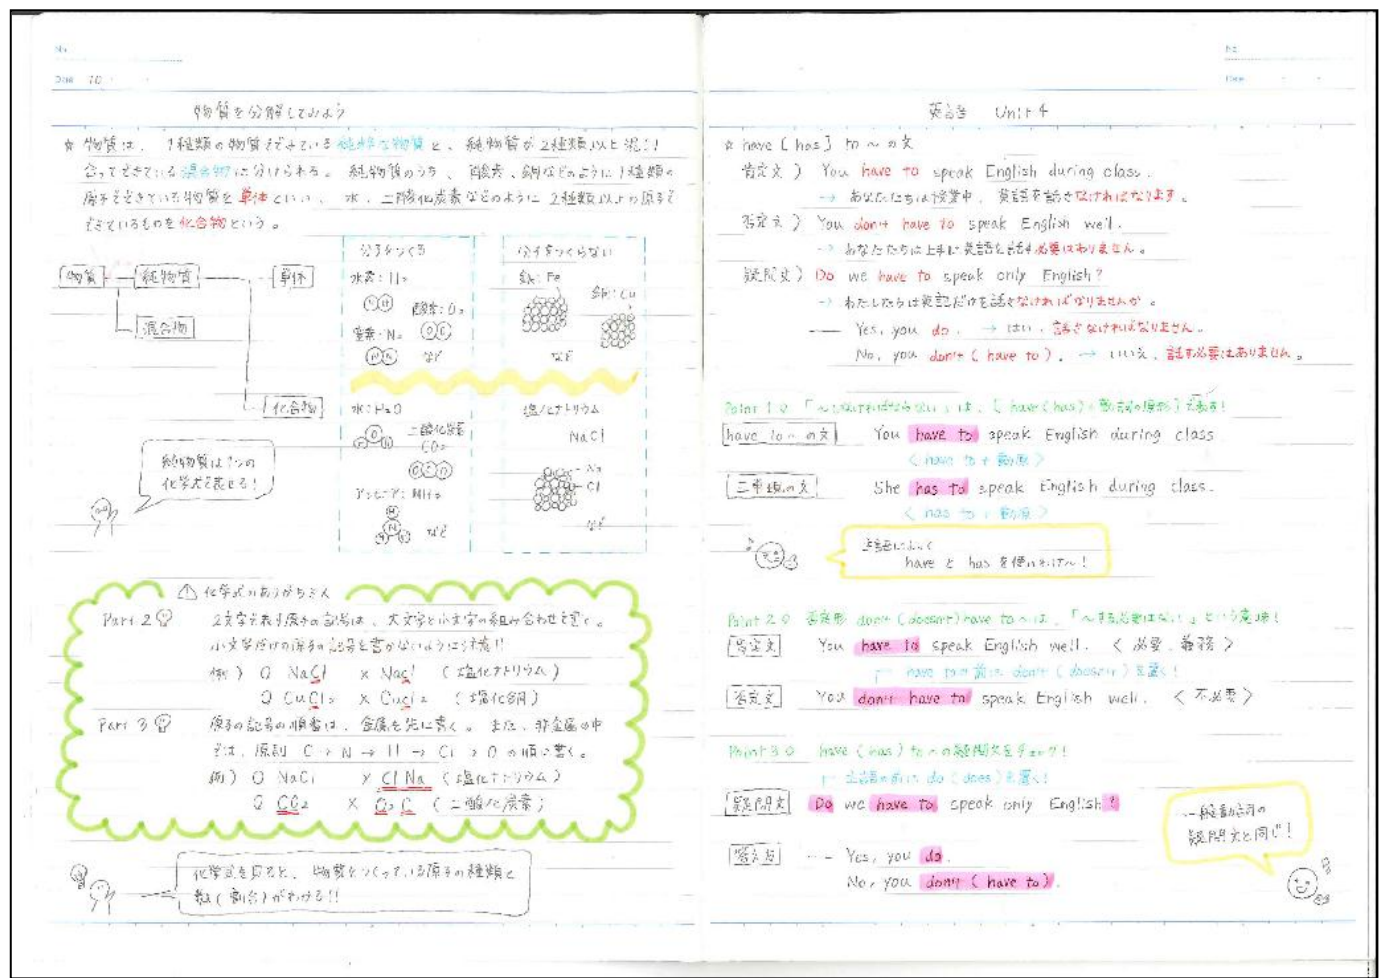 No.
Date 10
物質を分解してみよう
☆ 物質は、1種類の物質でできている純粋な物質と、純物質が2種類以上混じり
合ってできている混合物に分けられる。純物質のうち、酸素、銅などのように1種類の
原子でできている物質を単体といい、水、二酸化炭素などのように2種類以上の原子で
できているものを化合物という。
物質
純物質
単体
混合物
化合物
分子をつくる
水素:H₂
酸素:O₂
窒素:N₂
など
分子をつくらない
鉄:Fe
銅:Cu
など
水:H₂O
二酸化炭素
CO₂
アンモニア:NH₃
など
塩化ナトリウム
NaCl
Na
Cl
など
純物質は1つの
化学式で表せる!
⚠ 化学式のありがちミス
Part 2
2文字で表す原子の記号は、大文字と小文字の組み合わせで書く。
小文字だけの原子の記号を書かないように注意!!
例) ○ NaCl × Nacl (塩化ナトリウム)
○ CuCl₂ × Cucl₂ (塩化銅)
Part 3
原子の記号の順番は、金属を先に書く。また、非金属の中
では、原則 C → N → H → Cl → O の順に書く。
例) ○ NaCl × ClNa (塩化ナトリウム)
○ CO₂ × O₂C (二酸化炭素)
化学式を見ると、物質をつくっている原子の種類と
数(割合)がわかる!!
No.
Date
英語 Unit 4
☆ have [has] to ~ の文
肯定文) You have to speak English during class.
→ あなたたちは授業中、英語を話さなければなります。
否定文) You don't have to speak English well.
→ あなたたちは上手に英語を話す必要はありません。
疑問文) Do we have to speak only English?
→ わたしたちは英語だけを話さなければなりませんか。
— Yes, you do. → はい、話さなければなりません。
No, you don't (have to). → いいえ、話す必要はありません。
Point 1 「~しなければならない」は、[have (has) + 動詞の原形]で表す!
have to ~ の文 You have to speak English during class
<have to + 動原>
三単現の文 She has to speak English during class.
<has to + 動原>
主語によって
have と has を使いわけ~!
Point 2 否定形 don't (doesn't) have to ~ は、「~する必要はない」という意味!
肯定文 You have to speak English well. <必要、義務>
have to の前に don't (doesn't) を置く!
否定文 You don't have to speak English well. <不必要>
Point 3 have (has) to ~ の疑問文をチェック!
主語の前に do (does) を置く!
疑問文 Do we have to speak only English?
答え方 -- Yes, you do.
No, you don't (have to).
一般動詞の
疑問文と同じ!